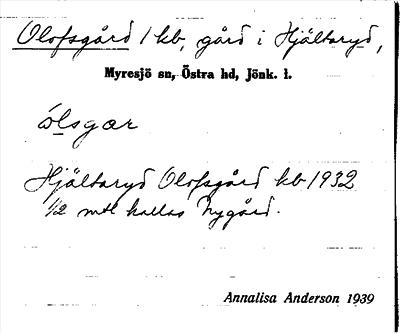 Olofsgård 1 kb, gård i Hjältaryd,
Myresjö sn, Östra hd, Jönk. l.
ólsgær
Hjältaryd Olofsgård kb 1932
1/2 mtl kallas Nygård.
Annalisa Anderson 1939